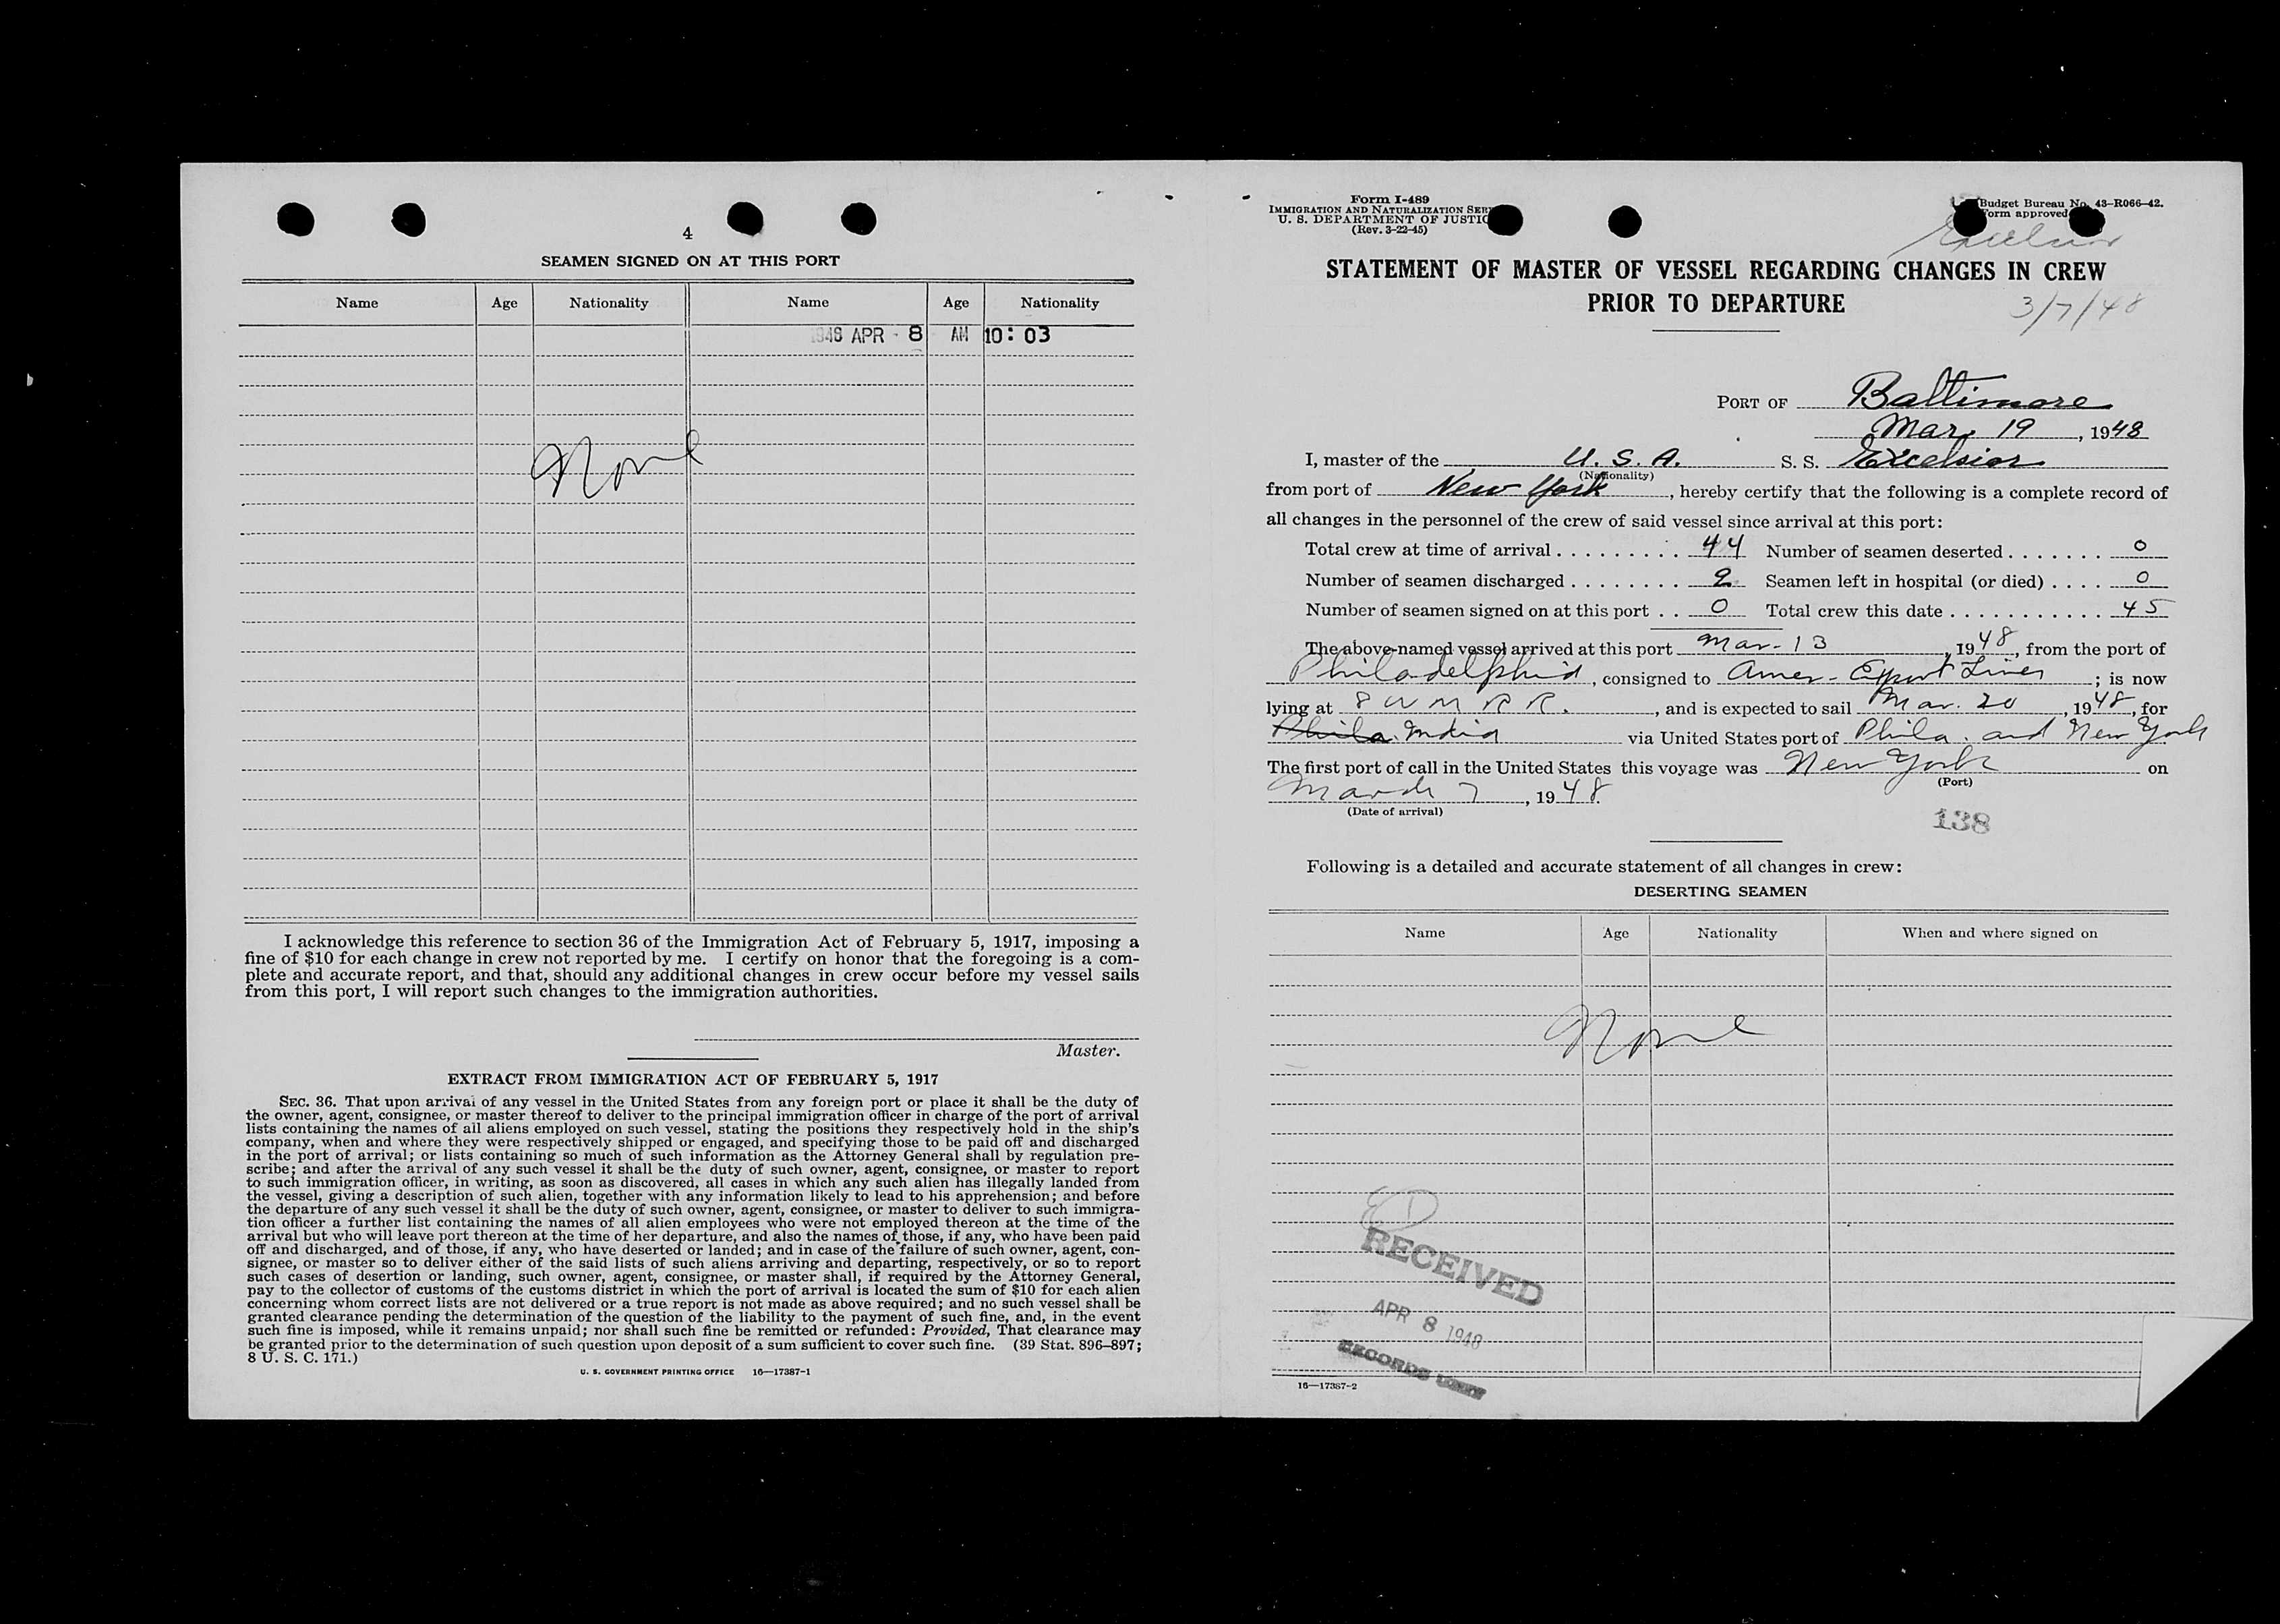 4
SEAMEN SIGNED ON AT THIS PORT
Name Age Nationality Name Age Nationality
1948 APR - 8 AM 10:03
None
I acknowledge this reference to section 36 of the Immigration Act of February 5, 1917, imposing a
fine of $10 for each change in crew not reported by me. I certify on honor that the foregoing is a com-
plete and accurate report, and that, should any additional changes in crew occur before my vessel sails
from this port, I will report such changes to the immigration authorities.
Master.
EXTRACT FROM IMMIGRATION ACT OF FEBRUARY 5, 1917
SEC. 36. That upon arrival of any vessel in the United States from any foreign port or place it shall be the duty of
the owner, agent, consignee, or master thereof to deliver to the principal immigration officer in charge of the port of arrival
lists containing the names of all aliens employed on such vessel, stating the positions they respectively hold in the ship's
company, when and where they were respectively shipped or engaged, and specifying those to be paid off and discharged
in the port of arrival; or lists containing so much of such information as the Attorney General shall by regulation pre-
scribe; and after the arrival of any such vessel it shall be the duty of such owner, agent, consignee, or master to report
to such immigration officer, in writing, as soon as discovered, all cases in which any such alien has illegally landed from
the vessel, giving a description of such alien, together with any information likely to lead to his apprehension; and before
the departure of any such vessel it shall be the duty of such owner, agent, consignee, or master to deliver to such immigra-
tion officer a further list containing the names of all alien employees who were not employed thereon at the time of the
arrival but who will leave port thereon at the time of her departure, and also the names of those, if any, who have been paid
off and discharged, and of those, if any, who have deserted or landed; and in case of the failure of such owner, agent, con-
signee, or master so to deliver either of the said lists of such aliens arriving and departing, respectively, or so to report
such cases of desertion or landing, such owner, agent, consignee, or master shall, if required by the Attorney General,
pay to the collector of customs of the customs district in which the port of arrival is located the sum of $10 for each alien
concerning whom correct lists are not delivered or a true report is not made as above required; and no such vessel shall be
granted clearance pending the determination of the question of the liability to the payment of such fine, and, in the event
such fine is imposed, while it remains unpaid; nor shall such fine be remitted or refunded: Provided, That clearance may
be granted prior to the determination of such question upon deposit of a sum sufficient to cover such fine. (39 Stat. 896–897;
8 U. S. C. 171.)
U. S. GOVERNMENT PRINTING OFFICE 16—17387-1
Form I-489
IMMIGRATION AND NATURALIZATION SER
U. S. DEPARTMENT OF JUSTIC
(Rev. 3-22-45)
Budget Bureau No. 43-R066-42.
Form approved
Excelsior
STATEMENT OF MASTER OF VESSEL REGARDING CHANGES IN CREW
PRIOR TO DEPARTURE
3/7/48
PORT OF Baltimore
Mar. 19, 1948
I, master of the U. S. A. S. S. Excelsior
(Nationality)
from port of New York, hereby certify that the following is a complete record of
all changes in the personnel of the crew of said vessel since arrival at this port:
Total crew at time of arrival . . . . . . . . . 44 Number of seamen deserted . . . . . . . 0
Number of seamen discharged . . . . . . . . 2 Seamen left in hospital (or died) . . . . 0
Number of seamen signed on at this port . . 0 Total crew this date . . . . . . . . . . . . 45
The above-named vessel arrived at this port Mar. 13, 1948, from the port of
Philadelphia, consigned to Amer. Export Lines; is now
lying at 8 W M R R., and is expected to sail Mar. 20, 1948, for
Phila. India via United States port of Phila. and New York
The first port of call in the United States this voyage was New York on
(Port)
March 7, 1948.
(Date of arrival)
138
Following is a detailed and accurate statement of all changes in crew:
DESERTING SEAMEN
Name Age Nationality When and where signed on
None
RECEIVED
APR 8 1948
RECORDS
16—17387-2